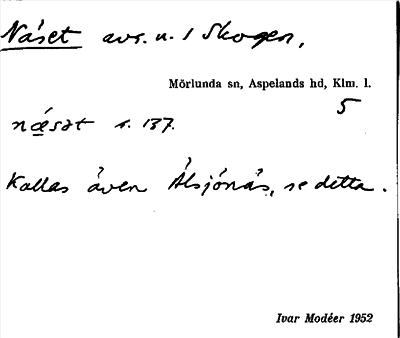 Näset avs. u. 1 Skogen,
Mörlunda sn, Aspelands hd, Klm. l.
5
næsət s. 137.
Kallas även Älsjönäs, se detta.
Ivar Modéer 1952